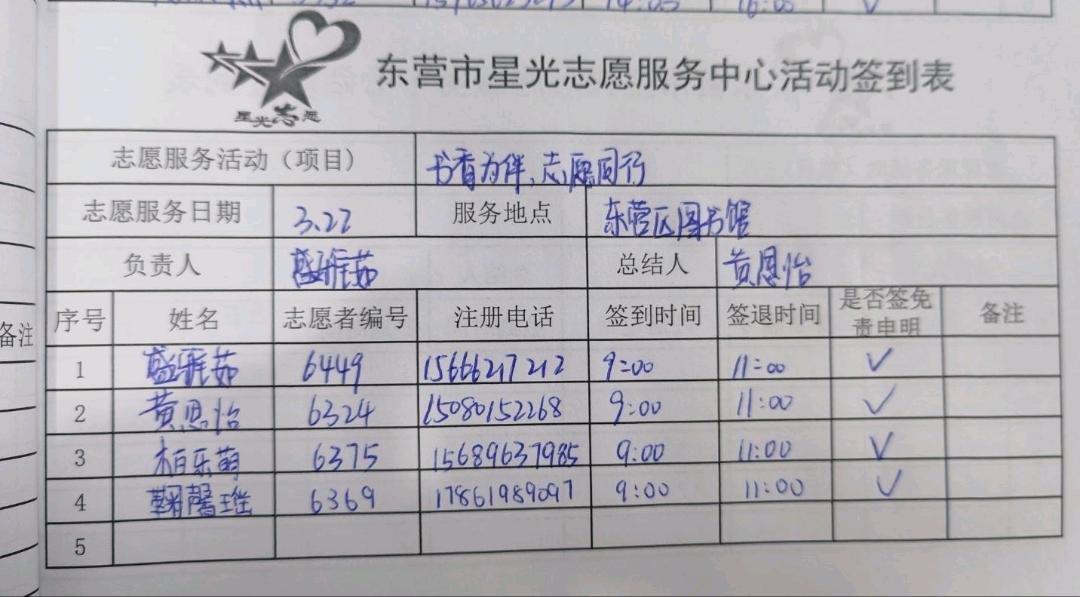 14:05 16:00 ✓
星光志愿
东营市星光志愿服务中心活动签到表
志愿服务活动（项目） 书香为伴,志愿同行
志愿服务日期 3.22 服务地点 东营区图书馆
负责人 盛雅茹 总结人 黄恩怡
序号 姓名 志愿者编号 注册电话 签到时间 签退时间 是否签免责申明 备注
备注
1 盛雅茹 6449 15666217212 9:00 11:00 ✓
2 黄恩怡 6324 15080152268 9:00 11:00 ✓
3 柏乐萌 6375 15689637985 9:00 11:00 ✓
4 鞠馨瑶 6369 17861989097 9:00 11:00 ✓
5